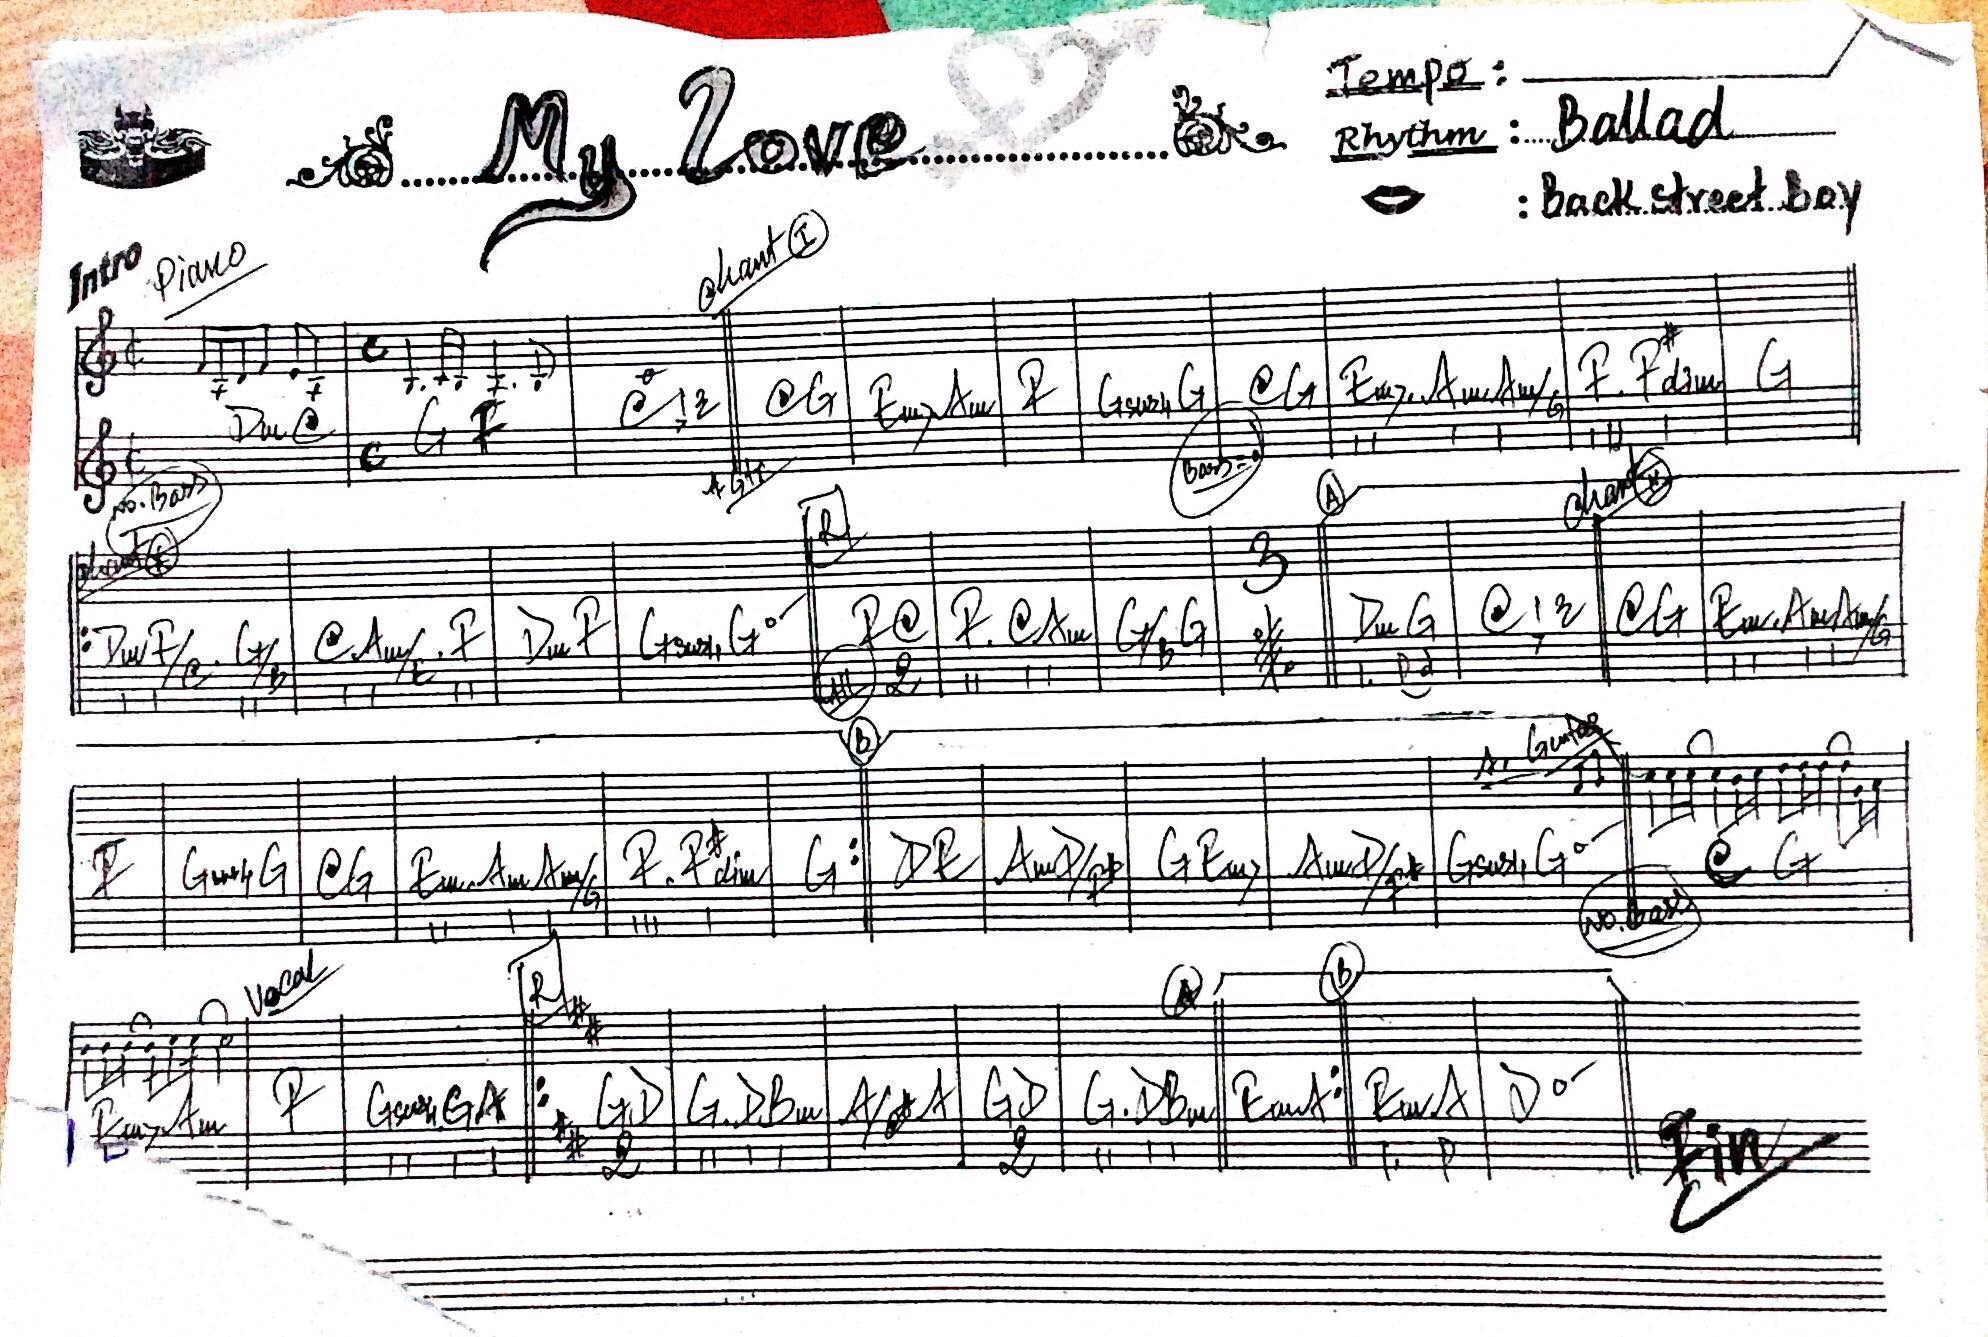 My Love
Tempo :
Rhythm : Ballad
: Back street Boy
Intro Piano
chant I
Dm C G F C CG Em7 Am F Gsus4 G CG Em7. Am Am/G F. F#dim G
No. Bass A Gtr Bass =
chant I R A chant II
Dm F/C. G/B C. Am/E. F Dm F Gsus4 G F C F. C Am G/B G 3 Dm G C CG Em. Am Am/G
All 2
B A. Guitar
F Gsus4 G CG Em. Am Am/G F. F#dim G D E Am D/F# G Em7 Am D/F# Gsus4 G C G
No. Bass
Vocal R A B
Em7 Am F Gsus4. G A G D G. D Bm A/C# A G D G. D Bm Em A Em. A D
2 2
Fin